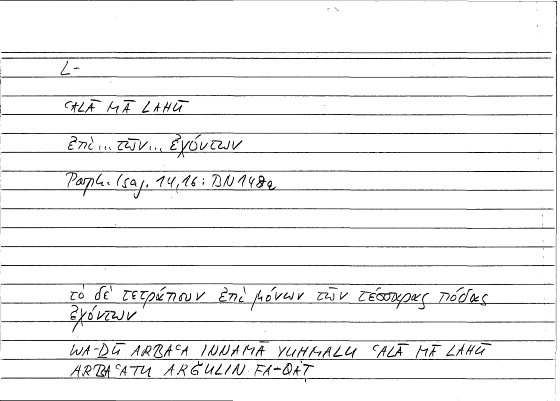 L-
ʿALĀ MĀ LAHŪ
ἐπὶ... τῶν... ἐχόντων
Porph. Isag. 14,16: DN148a
τὸ δὲ τετράπουν ἐπὶ μόνων τῶν τέσσαρας πόδας
ἐχόντων
WA-ḎŪ ARBAʿA INNAMĀ YUḤMALU ʿALĀ MĀ LAHŪ
ARBAʿATU ARǦULIN FA-QAṬ